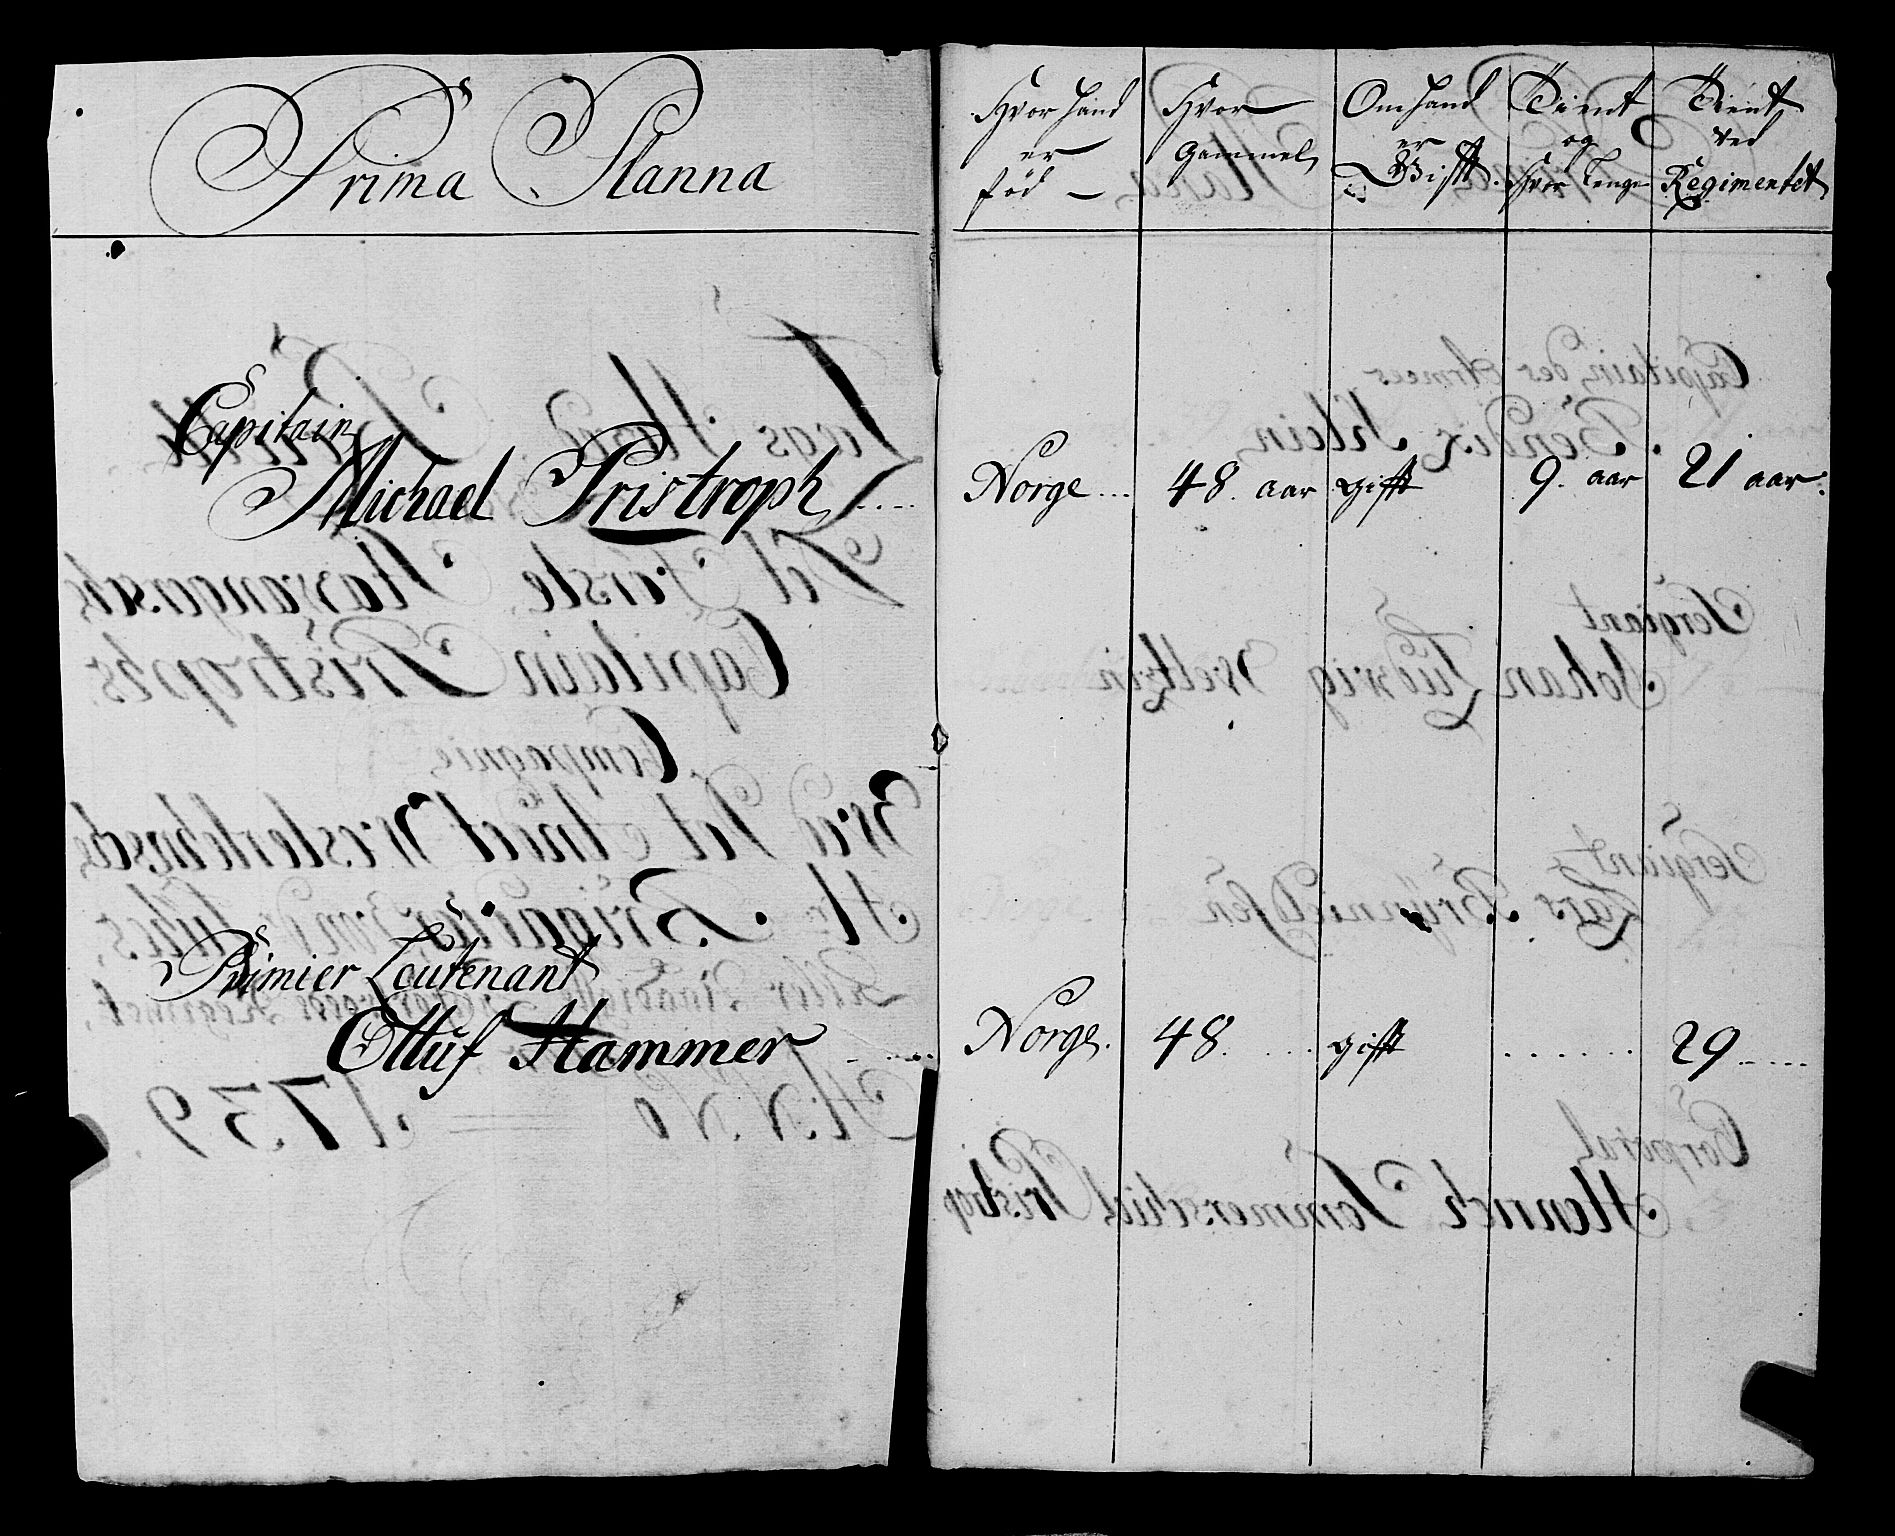 Prima Plana
Hvor hand er fød
Hvor Gammel
Om hand er Gifft
Tient og Hvor Lenge
Tient ved Regimentet
Capitain
Michael Pristroph
Norge 48. aar gifft 9. aar 21 aar.
Primier Leutenant
Olluf Hammer
Norge. 48. gifft 29